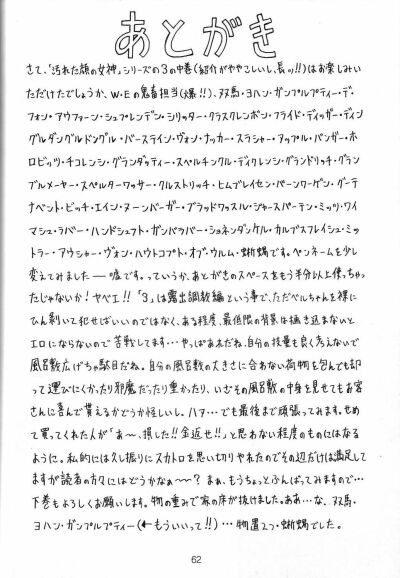 あとがき
さて、「汚れた顔の女神」シリーズの3の中巻(紹介がややこしいし、長ッ!!)はお楽しみい
ただけたでしょうか、W・Eの鬼畜担当(爆!!)、双馬・ヨハン・ガンプルプルティー・デ・
フォン・アウファーン・シュプレンデン・シリッター・クラスクレンボン・フライド・ディッガー・ディン
グルダングルドングル・バーステイン・ヴォン・ナッカー・スラシャー・アップル・バンガー・ホ
ロビッツ・チコレンシ・グランダッティー・スペルチンクル・ディクレンシ・グランドリッチ・グラン
ブルメーヤー・スペルターワッサー・クルストリッチ・ヒムブレイセン・バーンワーゲン・グーテ
ナベント・ビッチ・エイン・ヌーンバーガー・ブラッドワッスル・ジャースパーテン・ミッツ・ワイ
マシュ・ラバー・ハンドシュフト・ガンバラバー・ショネンダッケル・カルブスフレイシュ・ミッ
トラー・アウシャー・ヴォン・ハウトコプト・オブ・ウルム・蜥蜴です。ペンネームを少し
変えてみました――嘘です。っていうか、あとがきのスペースをもう半分以上使っちゃっ
たじゃないか!ヤベエ!!「3」は露出調教編という事で、ただベルちゃんを裸に
ひん剥いて犯せばいいのではなく、ある程度、最低限の背景は描き込まないと
エロにならないので苦戦してます…やっぱあれだね。自分の技量も良く考えないで
風呂敷広げちゃ駄目だね。自分の風呂敷の大きさに合わない荷物を包んでも却
って運びにくかったり邪魔だったり重かったり、いざその風呂敷の中身を見せてもお客
さんに喜んで貰えるかどうか怪しいし。ハア…でも最後まで頑張ってみます。せめ
て買ってくれた人が「あ〜、損した!!金返せ!!」と思わない程度のものにはなる
ように。私的には久し振りにスカトロを思い切りやれたのでその辺だけは満足して
ますが読者の方々にはどうかなぁ〜?まぁ、もうちょっとふんばってみますので…
下巻もよろしくお願いします。物の重みで家の床が抜けました。ああ…な、双馬・
ヨハン・ガンプルプティー(←もういいって!!)…物置エつ・蜥蜴でした。
62